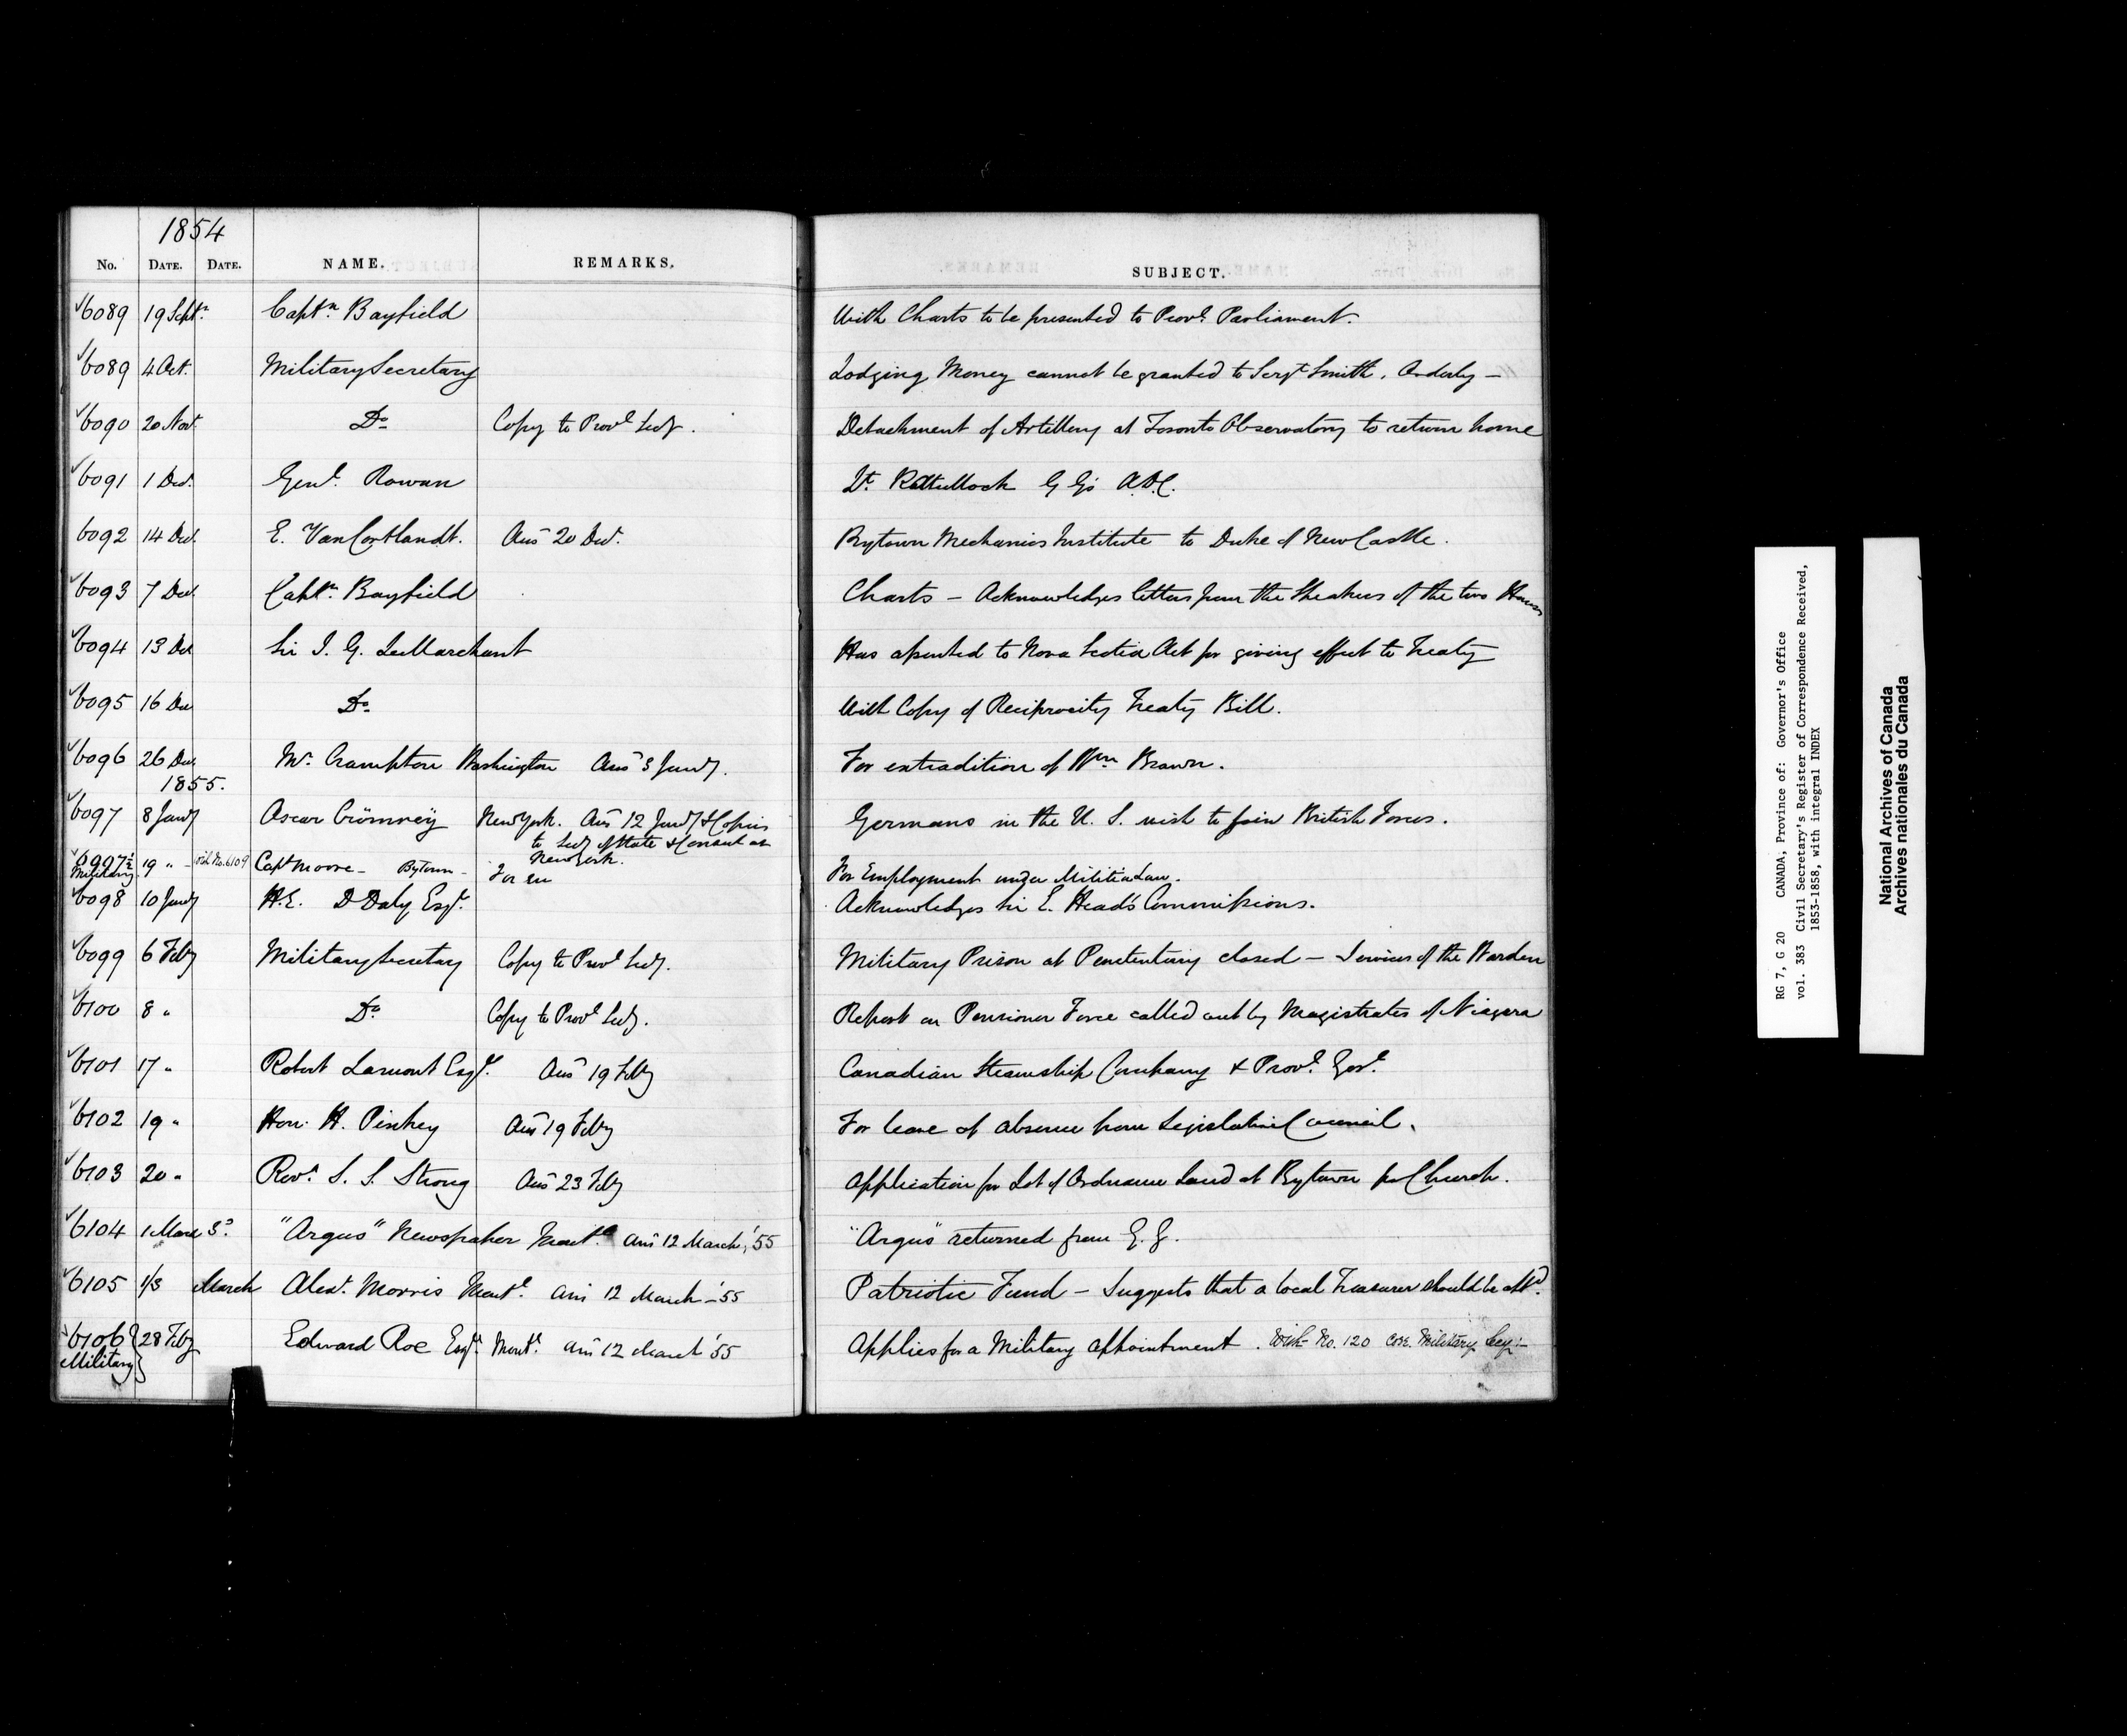 1854
No. DATE. DATE. NAME. REMARKS. SUBJECT.
6089 19 Septr. Captn. Bayfield With Charts to be presented to Provl. Parliament.
6089 4 Oct. Military Secretary Lodging Money cannot be granted to Sergt Smith, Orderly –
6090 20 Nov. Do Copy to Provl Secy. Detachment of Artillery at Toronto Observatory to return home
6091 1 Dec. Genl. Rowan Lt. G G's A.D.C.
6092 14 Dec. E. Van Cortlandt. Ans 20 Dec. Bytown Mechanics Institute to Duke of NewCastle.
6093 7 Dec. Captn. Bayfield Charts – Acknowledges letters from the Speakers of the two Houses
6094 13 Dec Sir J. G. LeMarchant Has assented to Nova Scotia Act for giving effect to Treaty
6095 16 Dec Do With Copy of Reciprocity Treaty Bill.
6096 26 Dec. Mr. Crampton Washington Ans 3 Jany. For extradition of Wm Brown.
1855.
6097 8 Jany Oscar New York. Ans 12 Jany & Copies Germans in the U. S. wish to join British Forces.
to Secy of State & Consul at
New York.
6097½ 19 " – vide No. 6109 Capt Moore – Bytown – For em For Employment under Militia Law.
Military
6098 10 Jany H.E. D Daly Esqr. Acknowledges Sir E. Head's Commissions.
6099 6 Feby Military Secretary Copy to Provl Secy. Military Prison at Penetentiary closed – Services of the Warden
6100 8 " Do Copy to Provl Secy. Report on Pensioner Force called out by Magistrates of Niagara
6101 17 " Robert Lamont Esqr. Ans 19 Feby Canadian Steamship Company & Provl. Govt.
6102 19 " Hon. H. Pinhey Ans 19 Feby For leave of absence from Legislative Council.
6103 20 " Revd. S. S. Strong Ans 23 Feby Application for Lot of Ordnance Land at Bytown for Church.
6104 1 March "Argus" Newspaper Montl. Ans 12 March, '55 "Argus" returned from G. G.
6105 1/3 March Alexr. Morris Montl. Ans 12 March – '55 Patriotic Fund – Suggests that a local Treasurer should be appd.
6106 28 Feby Edward Roe Esqr. Montl. Ans 12 March '55 Applies for a Military appointment. With No. 120 Military Secy –
Military
RG 7, G 20 CANADA, Province of: Governor's Office
vol. 383 Civil Secretary's Register of Correspondence Received,
1853-1858, with integral INDEX
National Archives of Canada
Archives nationales du Canada